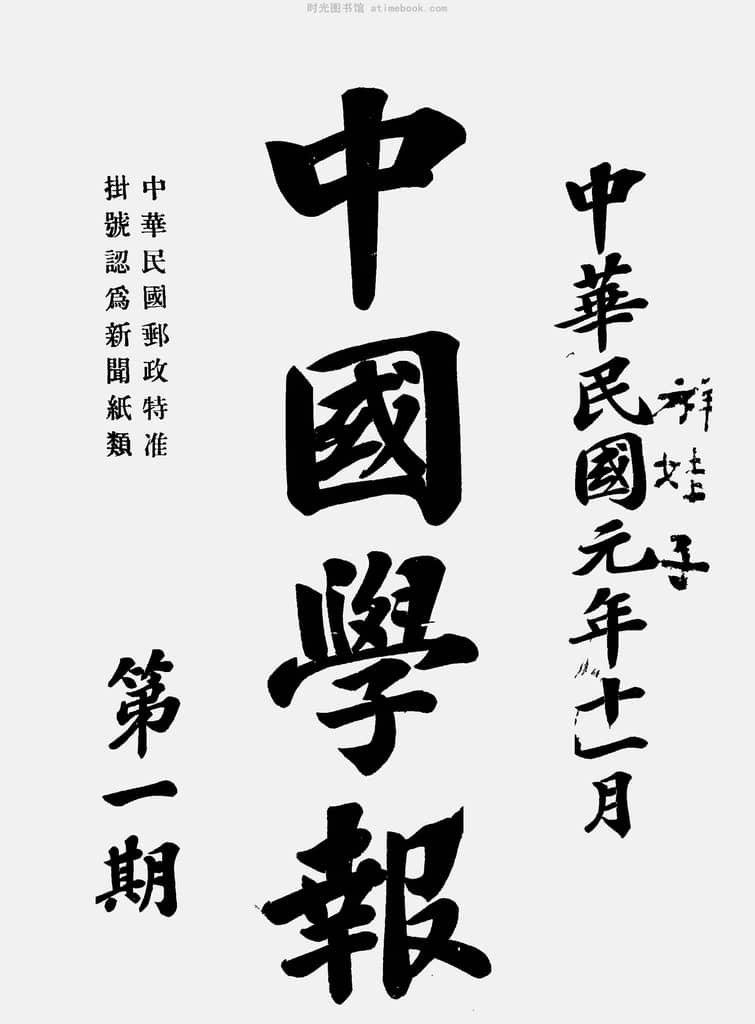 时光图书馆 atimebook.com
中華民國元年十一月
中國學報
中華民國郵政特准
掛號認爲新聞紙類
第一期